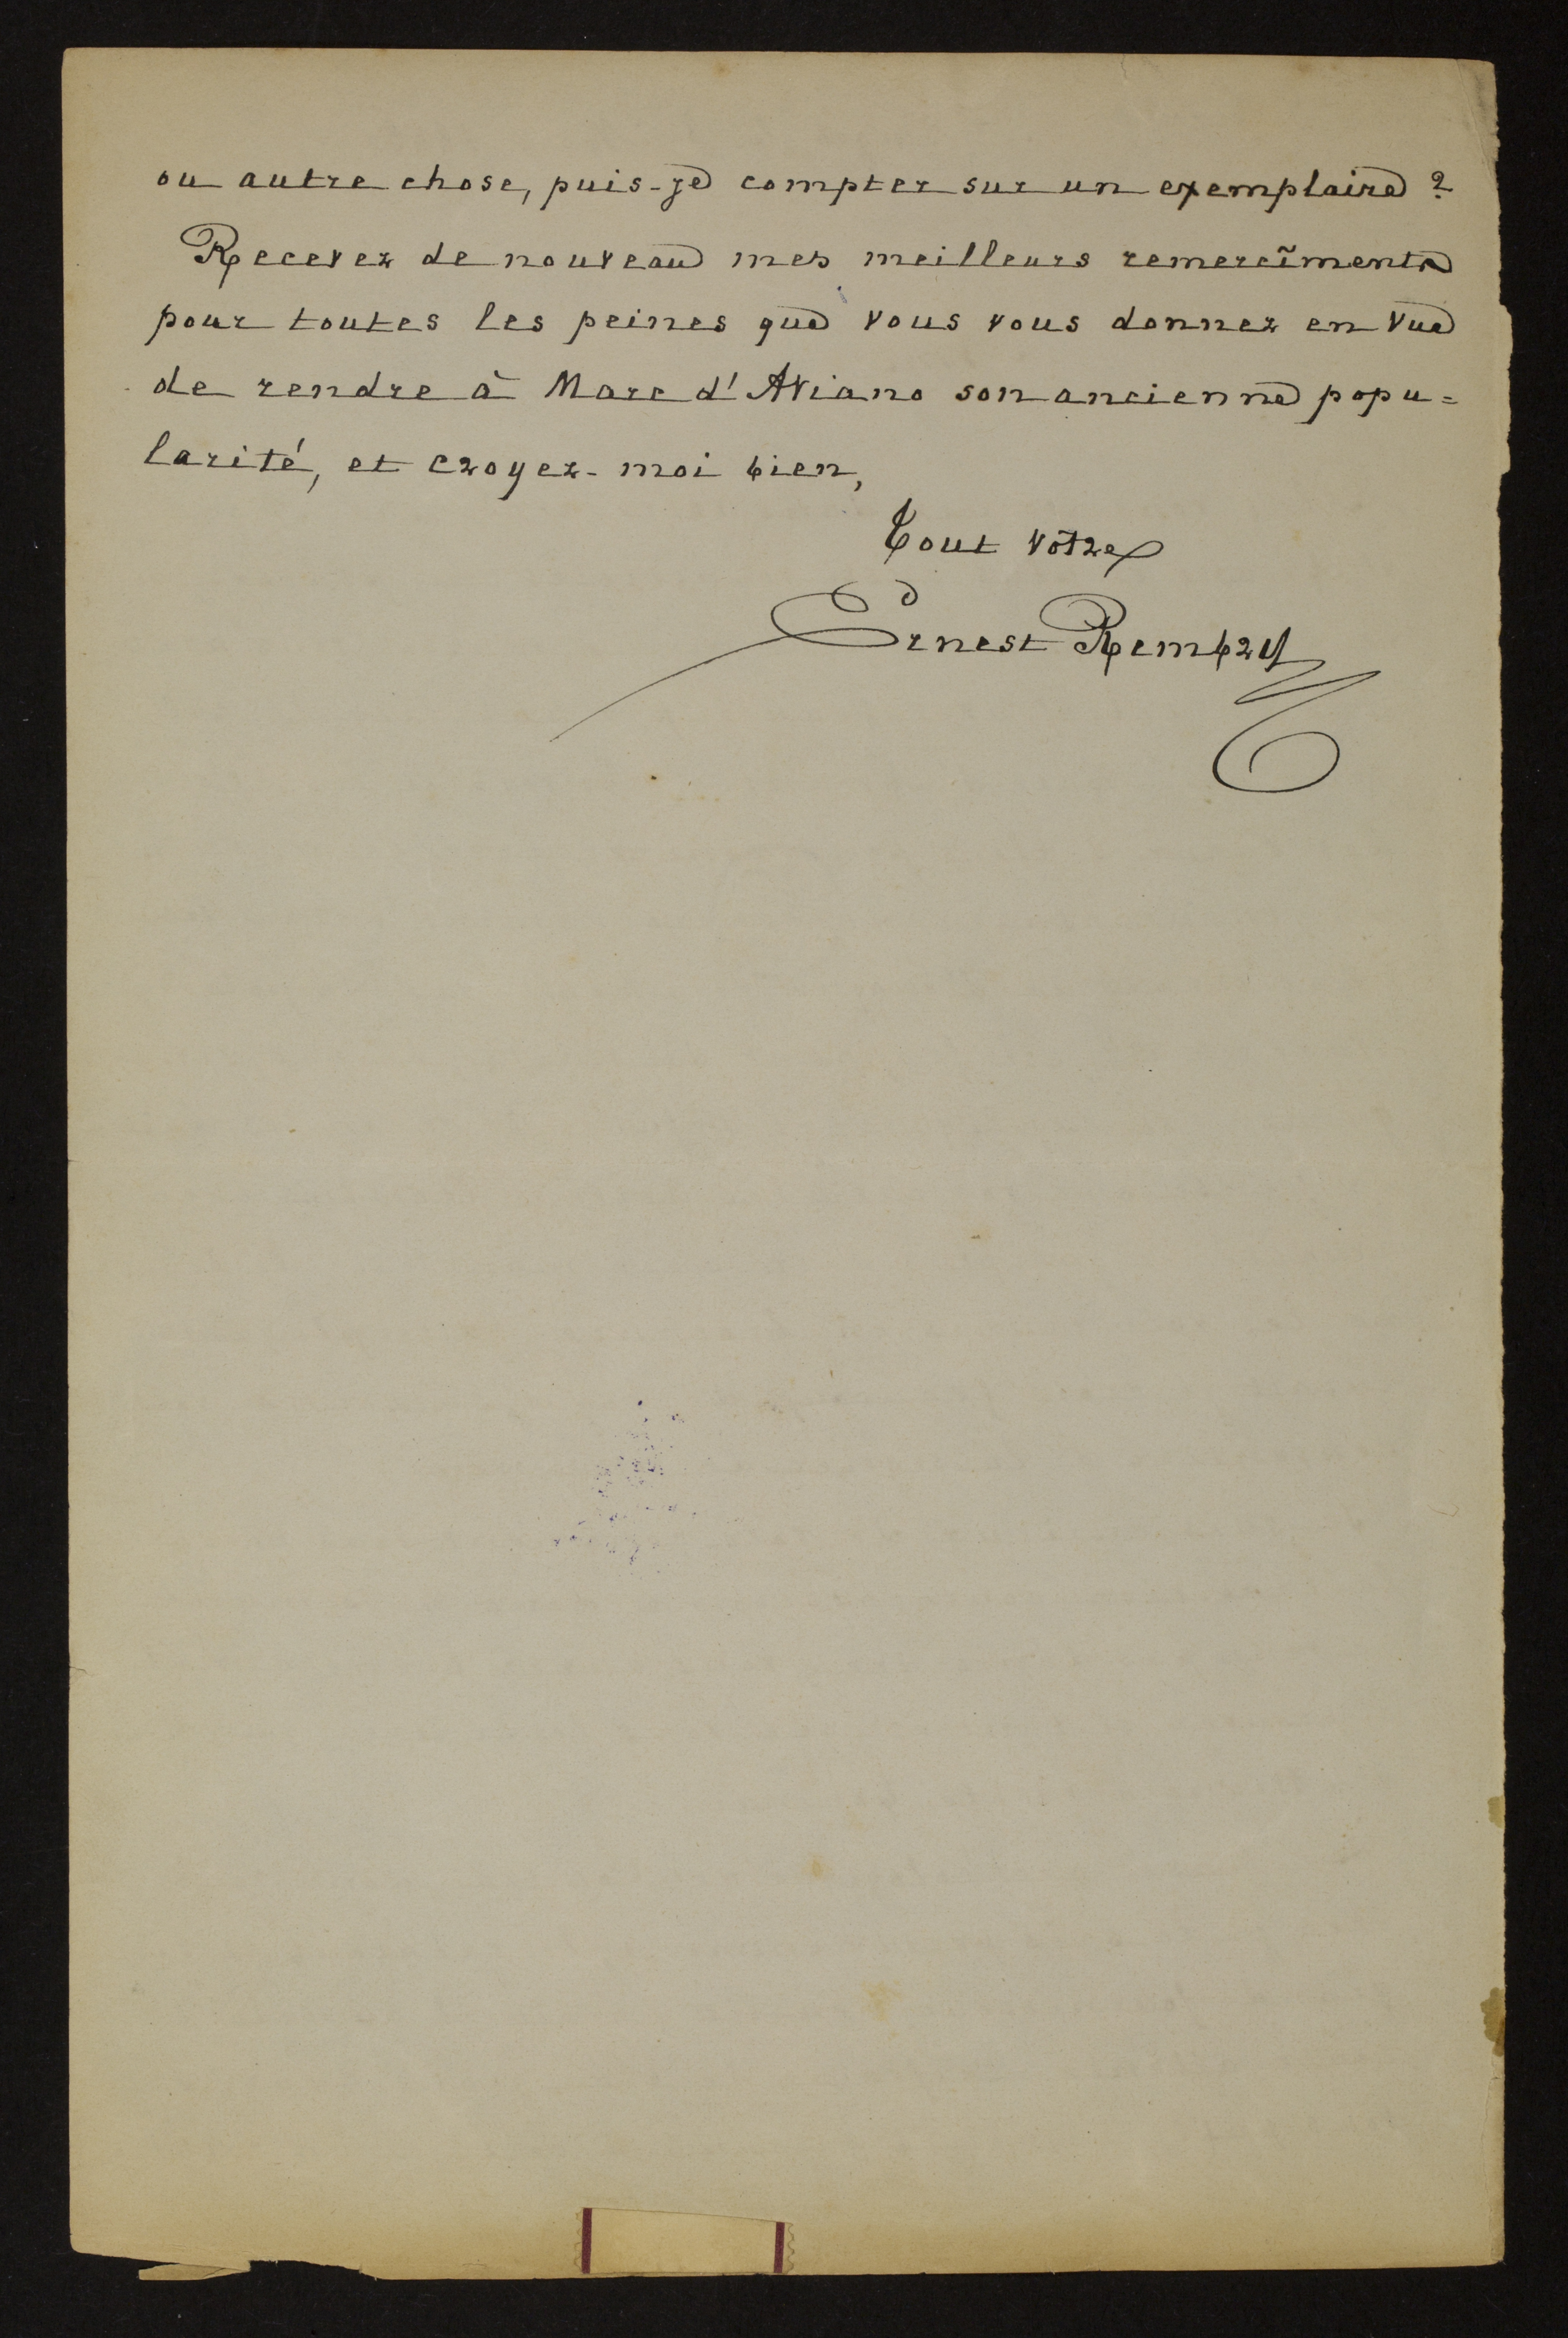 ou autre chose, puis-je compter sur un exemplaire ?
Recevez de nouveau mes meilleurs remercîments
pour toutes les peines que vous vous donnez en vue
de rendre à Marc d'Aviano son ancienne popu=
larité, et croyez-moi bien,
Tout vôtre
Ernest Rembry